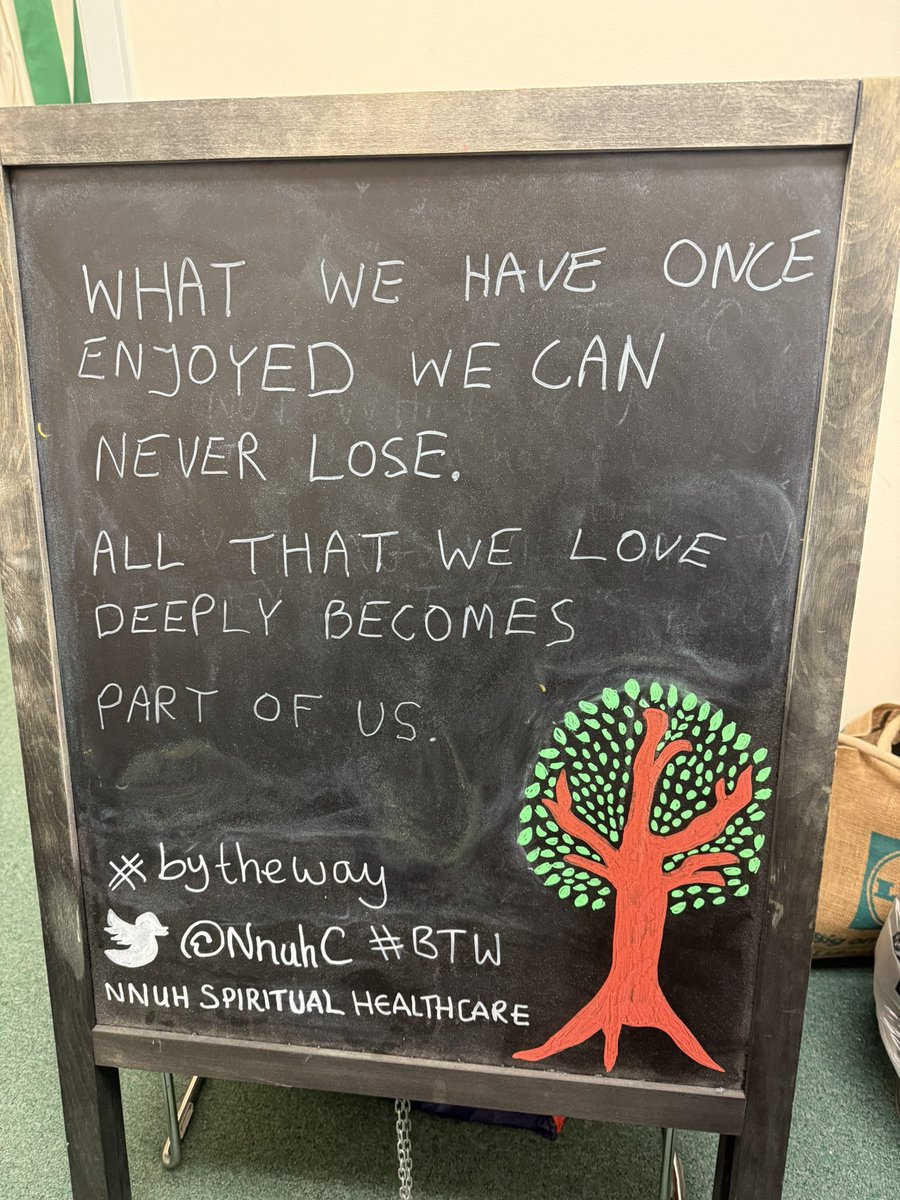 WHAT WE HAVE ONCE
ENJOYED WE CAN
NEVER LOSE.
ALL THAT WE LOVE
DEEPLY BECOMES
PART OF US.
#bytheway
@NnuhC #BTW
NNUH SPIRITUAL HEALTHCARE